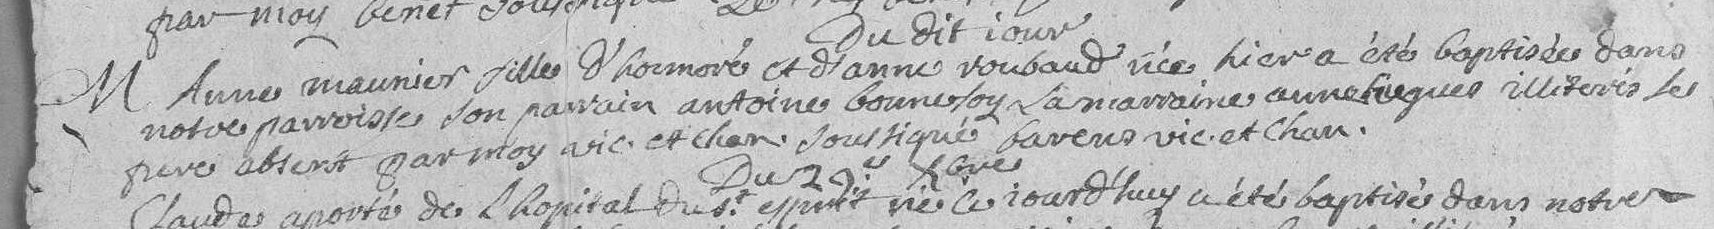 par moy benet soussigné
Du dit iour
M Anne maunier fille d'honnoré et d'anne roubaud née hier a été baptisée dans
notre parroisse son parrain antoine bonnefoy La marraine anne hugues illiterés le
pere absent par moy vic. et chan. soussigné barens vic. et chan.
Du 29e Xbre
Claude aporté de l'hopital du st. esprit né ce iourd'huy a été baptisé dans notre